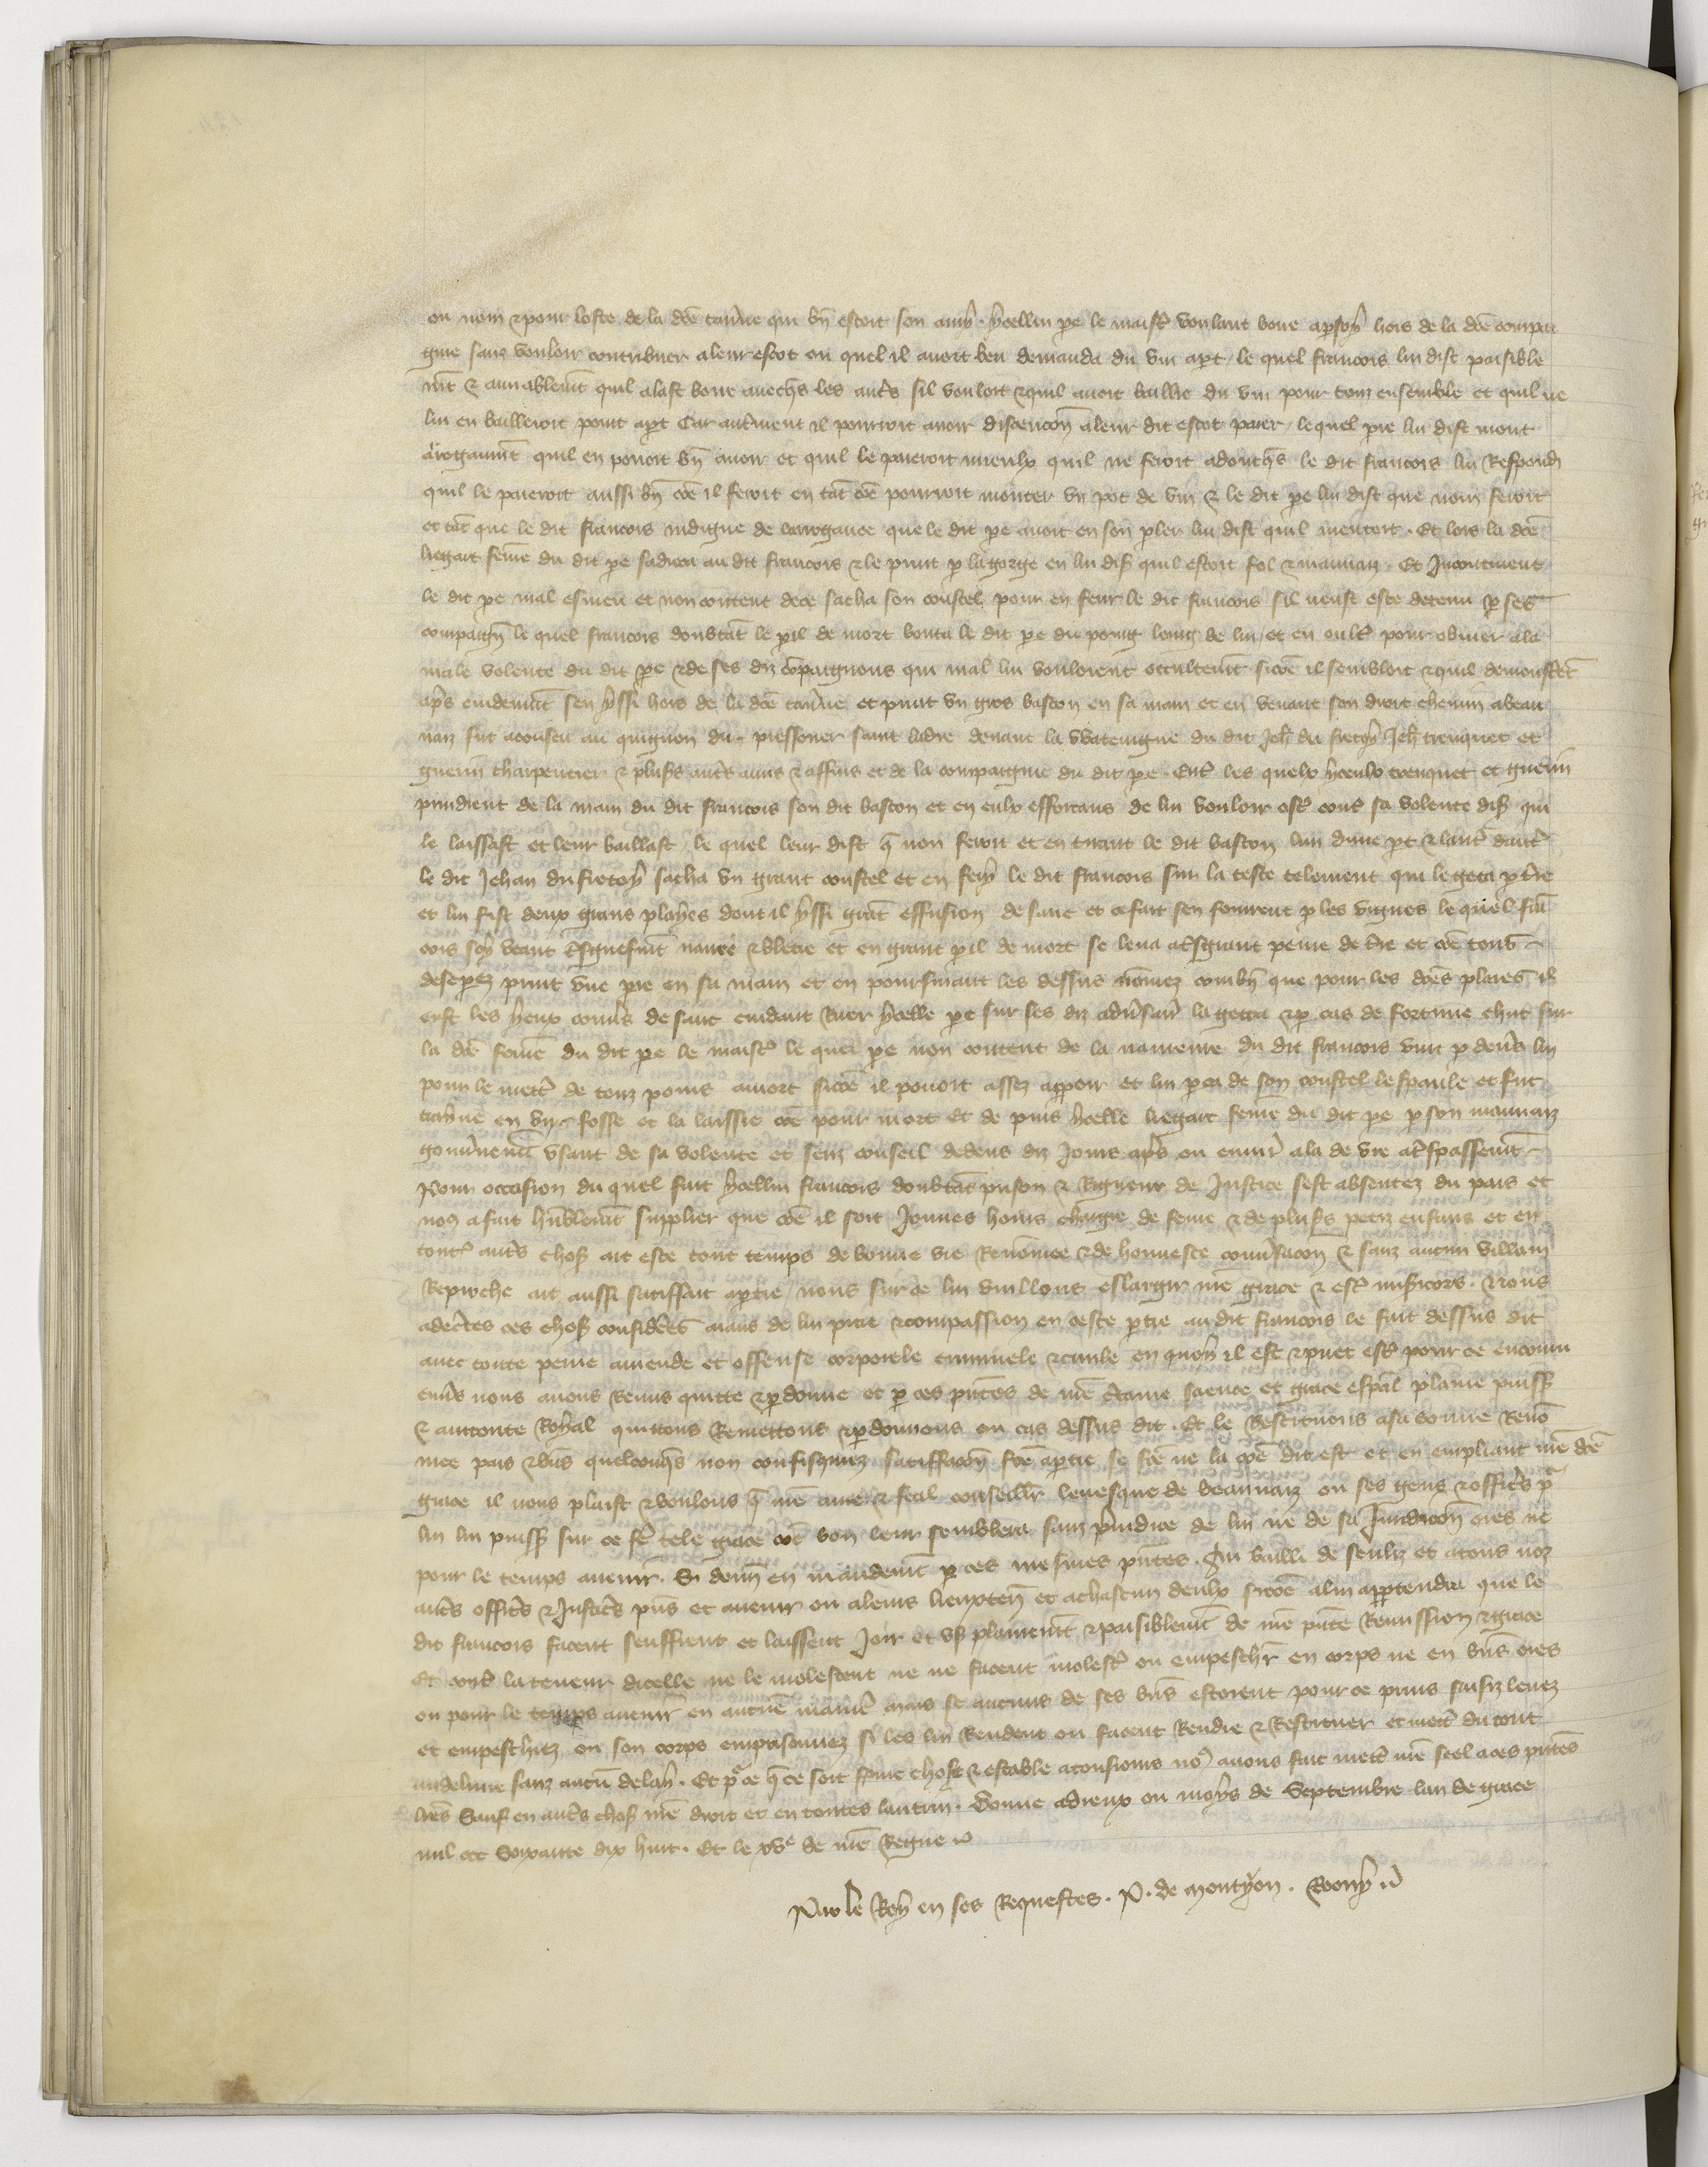 ou nom & pour loste de la dce taverne qui bn estoit son amy. ycellui pe le maistre voulant boire a p soy hors de la dce compai
gnie sanz vouloir contribuer a leur escot ou quel il avoit beu demanda du vin apt. le quel francois lui dist paisible
mt & amiablemt quil alast boire avecqs les autrs sil vouloit & quil avoit baillie du vin pour touz ensemble et quil ne
lui en bailleroit point apt Car autrement il pourroit avoir discencon a leur dit escot paier. lequel pre lui dist mout
arrogaumt quil en povoit bn avoir et quil le paieroit mieulx quil ne feroit adoncqs le dit francois lui Respondi
quil le paieroit aussi bn coe il feroit en tat coe pourroit monter un pot de vin & le dit pe lui dist que non feroit
et tat que le dit francois indigne de larrogance que le dit pe avoit en son pler lui dist quil mentoit. Et lors la dce
liegart feme du dit pe sadreca au dit francois & le print p la gorge en lui dis quil estoit fol & mauvaiz. Et Incontinent
le dit pe mal esmeu et non content de ce sacha son coustel pour en ferir le dit francois sil neust este detenu p ses
compaign le quel francois doubtat le pil de mort bouta le dit pe du poing loing de lui et en oultre pour obvier a la
male volente du dit pe & de ses diz copaignons qui mal lui vouloient occultemt sicoe il sembloit & quil demonstret
aps evidemmt sen yssi hors de la dce taverne et print un gros baston en sa main et en venant son droit chemin a beau
vaiz fut aconseu au quignon du pressouer saint ladre devant la du dit Jeh du fretoy Jeh trenquet et
guerin charpentier & plusrs autrs amis & affins et de la compaignie du dit pe. Entre les quelx yceulx trenquet et guerin
prindrent de la main du dit francois son dit baston et en eulx efforcans de lui vouloir oster contre sa volente dis qui
le laissast et leur baillast le quel leur dist q non feroit et en tirant le dit baston lun dune pt & lautre dautre
le dit Jehan du fretoy sacha un grant coustel et en fery le dit francois sur la teste telement qui le geta p tre
et lui fist deux grans playes dont il yssi grat effusion de sanc et ce fait sen fouirent p les vignes le quel fra
cois soy veant navre & blecie et en grant pil de mort se leva a tsgrant peine de tre et coe touz
desepez print une pre en sa main et en poursuiant les dessus nomez combn que pour les dces plaies il
eust les yeux couvers de sanc cuidant Ruer ycelle pre sur ses diz adversair la getta & p cas de fortune chut sur
la dce feme du dit pe le maistre le quel pe non content de la navreure du dit francois vint p devers lui
pour le mettre de touz poins a mort sicoe il povoit assez apparoir et lui perca de son coustel lespaule et fut
trayne en un fosse et la laissie coe pour mort Et de puis ycelle liegart feme du dit pe p son mauvaiz
gouvernemt usant de sa volente et senz conseil dedens diz Jours aprs ou environ ala de vie a trspassemt
Pour occasion du quel fait ycellui francois doubtat prison & Rigueur de Justice sest absentez du pais et
nous a fait humblemt supplier que coe il soit Jounes homs chargie de feme & de plusrs petiz enfans et en
toutes autrs chos ait este tout temps de bonne vie Renommee & de honneste conversacon & sanz aucun villain
Reproche ait aussi satisffait a ptie nous sur ce lui vuillons eslargir nre grace & estre misicors. Nous
adectes ces chos considerees aians de lui pitie & compassion en ceste ptie au dit francois le fait dessus dit
avec toute peine amende et offense corporele criminele & civile en quoy il est & puet estre pour ce encouru
envs nous avons Remis quitte & pdonne et p ces presentes de nre ctaine science et grace espal plaine puiss
& auctorite Royal quittons Remettons & pdonnons ou cas dessus dit. Et le Restituons a sa bonne Reno
mee pais & biens quelconqs non confisquez satisffacon fce a ptie se fce ne la coe dit est et en empliant nre dce
grace il nous plaist & voulons q nre ame & feal conseiller levesque de beauvaiz ou ses gens & officrs pr
lui lui puiss sur ce fe tele grace coe bon leur semblera sanz prejudice de lui ne de sa Juridicon ores ne
pour le temps avenir. Si donn en mandemt p ces mesmes presentes. Au bailli de senliz et a touz noz
autrs officrs & Justicrs prns et avenir ou a leurs lieuxten et a chascun deulx sicoe a lui appartendra que le
dit francois facent seuffrent et laissent Joir et us plainemt & paisiblemt de nre prnte Remission & grace
Et contre la teneur dicelle ne le molestent ne ne facent molester ou empeschr en corps ne en bns ores
ou pour le temps avenir en aucune maniere mais se aucuns de ses bns estoient pour ce prins saisiz levez
et empeschiez ou son corps emprisonnez si les lui Rendent ou facent Rendre & Restituer et mettre du tout
au delivre sanz aucun delay. Et pr ce q ce soit ferme chose & estable a tousjours nos avons fait mettre nre seel a ces prntes
lres Sauf en autrs chos nre droit et en toutes lautrui. Donne a dreux ou moys de Septembre lan de grace
mil ccc Soixante dix huit. Et le xve de nre Regne
Par le Roy en ses Requestes. P. de Montyon. Roony